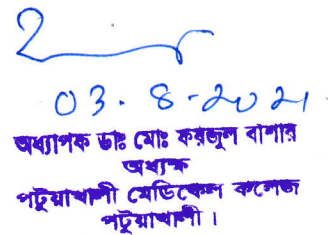 03.8-2021
অধ্যাপক ডাঃ মোঃ ফয়জুল বাশার
অধ্যক্ষ
পটুয়াখালী মেডিকেল কলেজ
পটুয়াখালী।